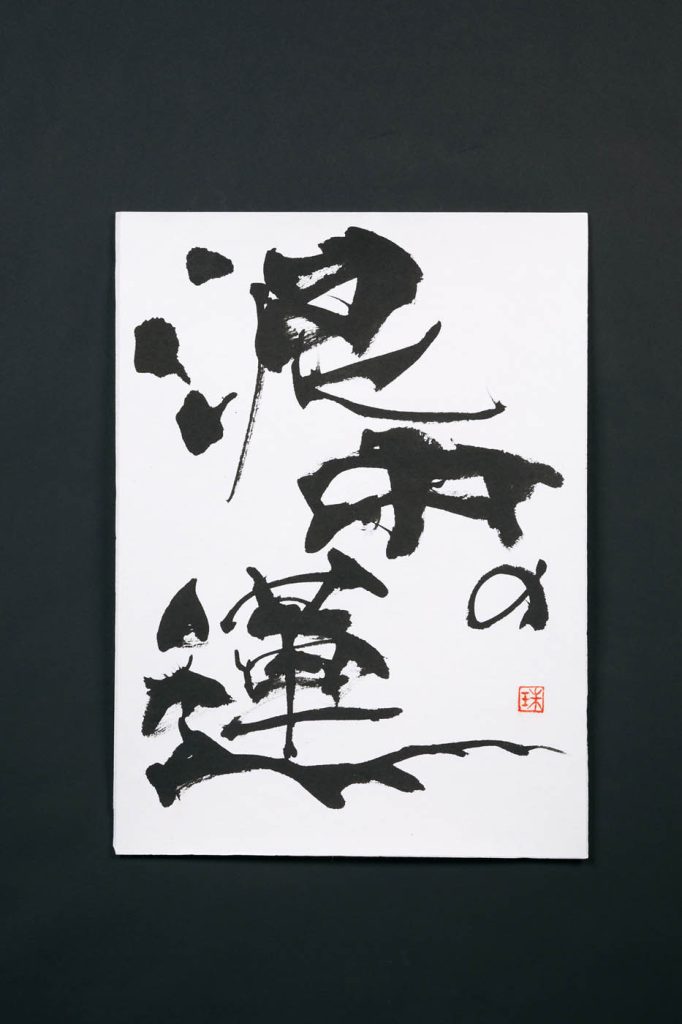 泥中の蓮
珠